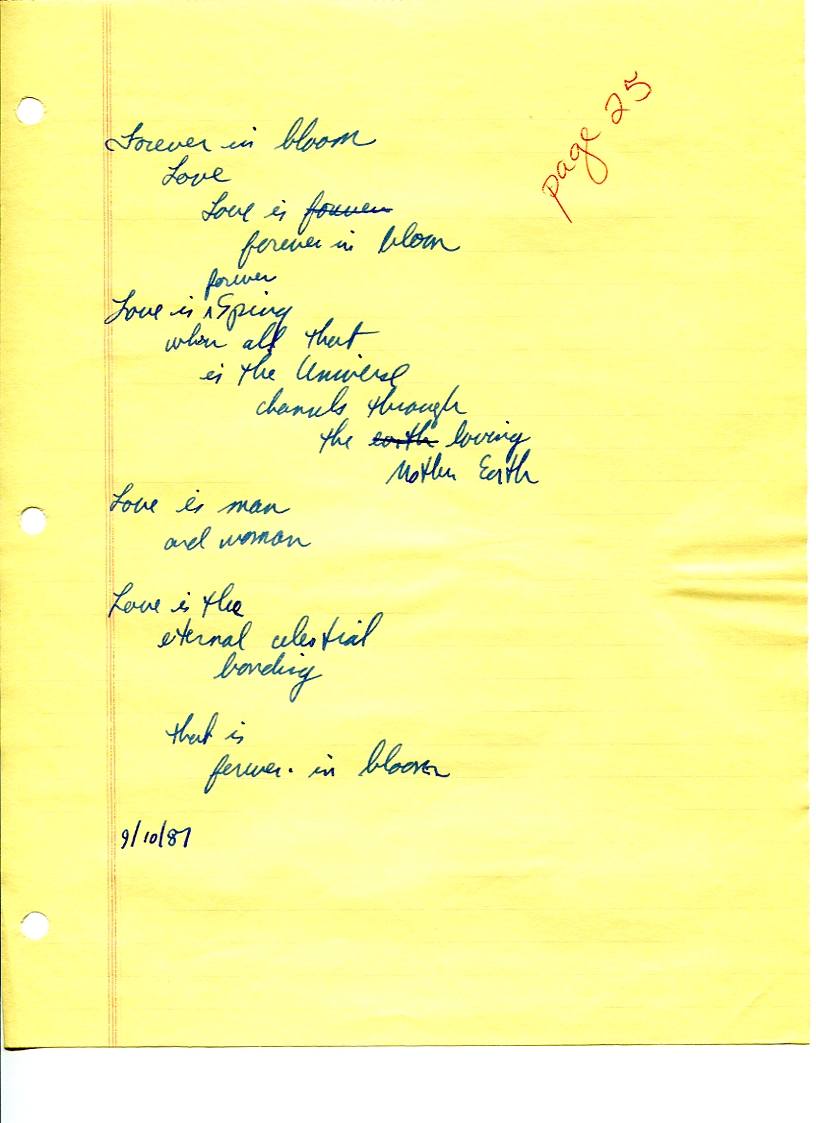 page 25
Forever in bloom
Love
Love is forever
forever in bloom
forever
Love is Spring
when all that
is the Universe
channels through
the earth loving
Mother Earth
Love is man
and woman
Love is the
eternal celestial
bonding
that is
forever in bloom
9/10/87